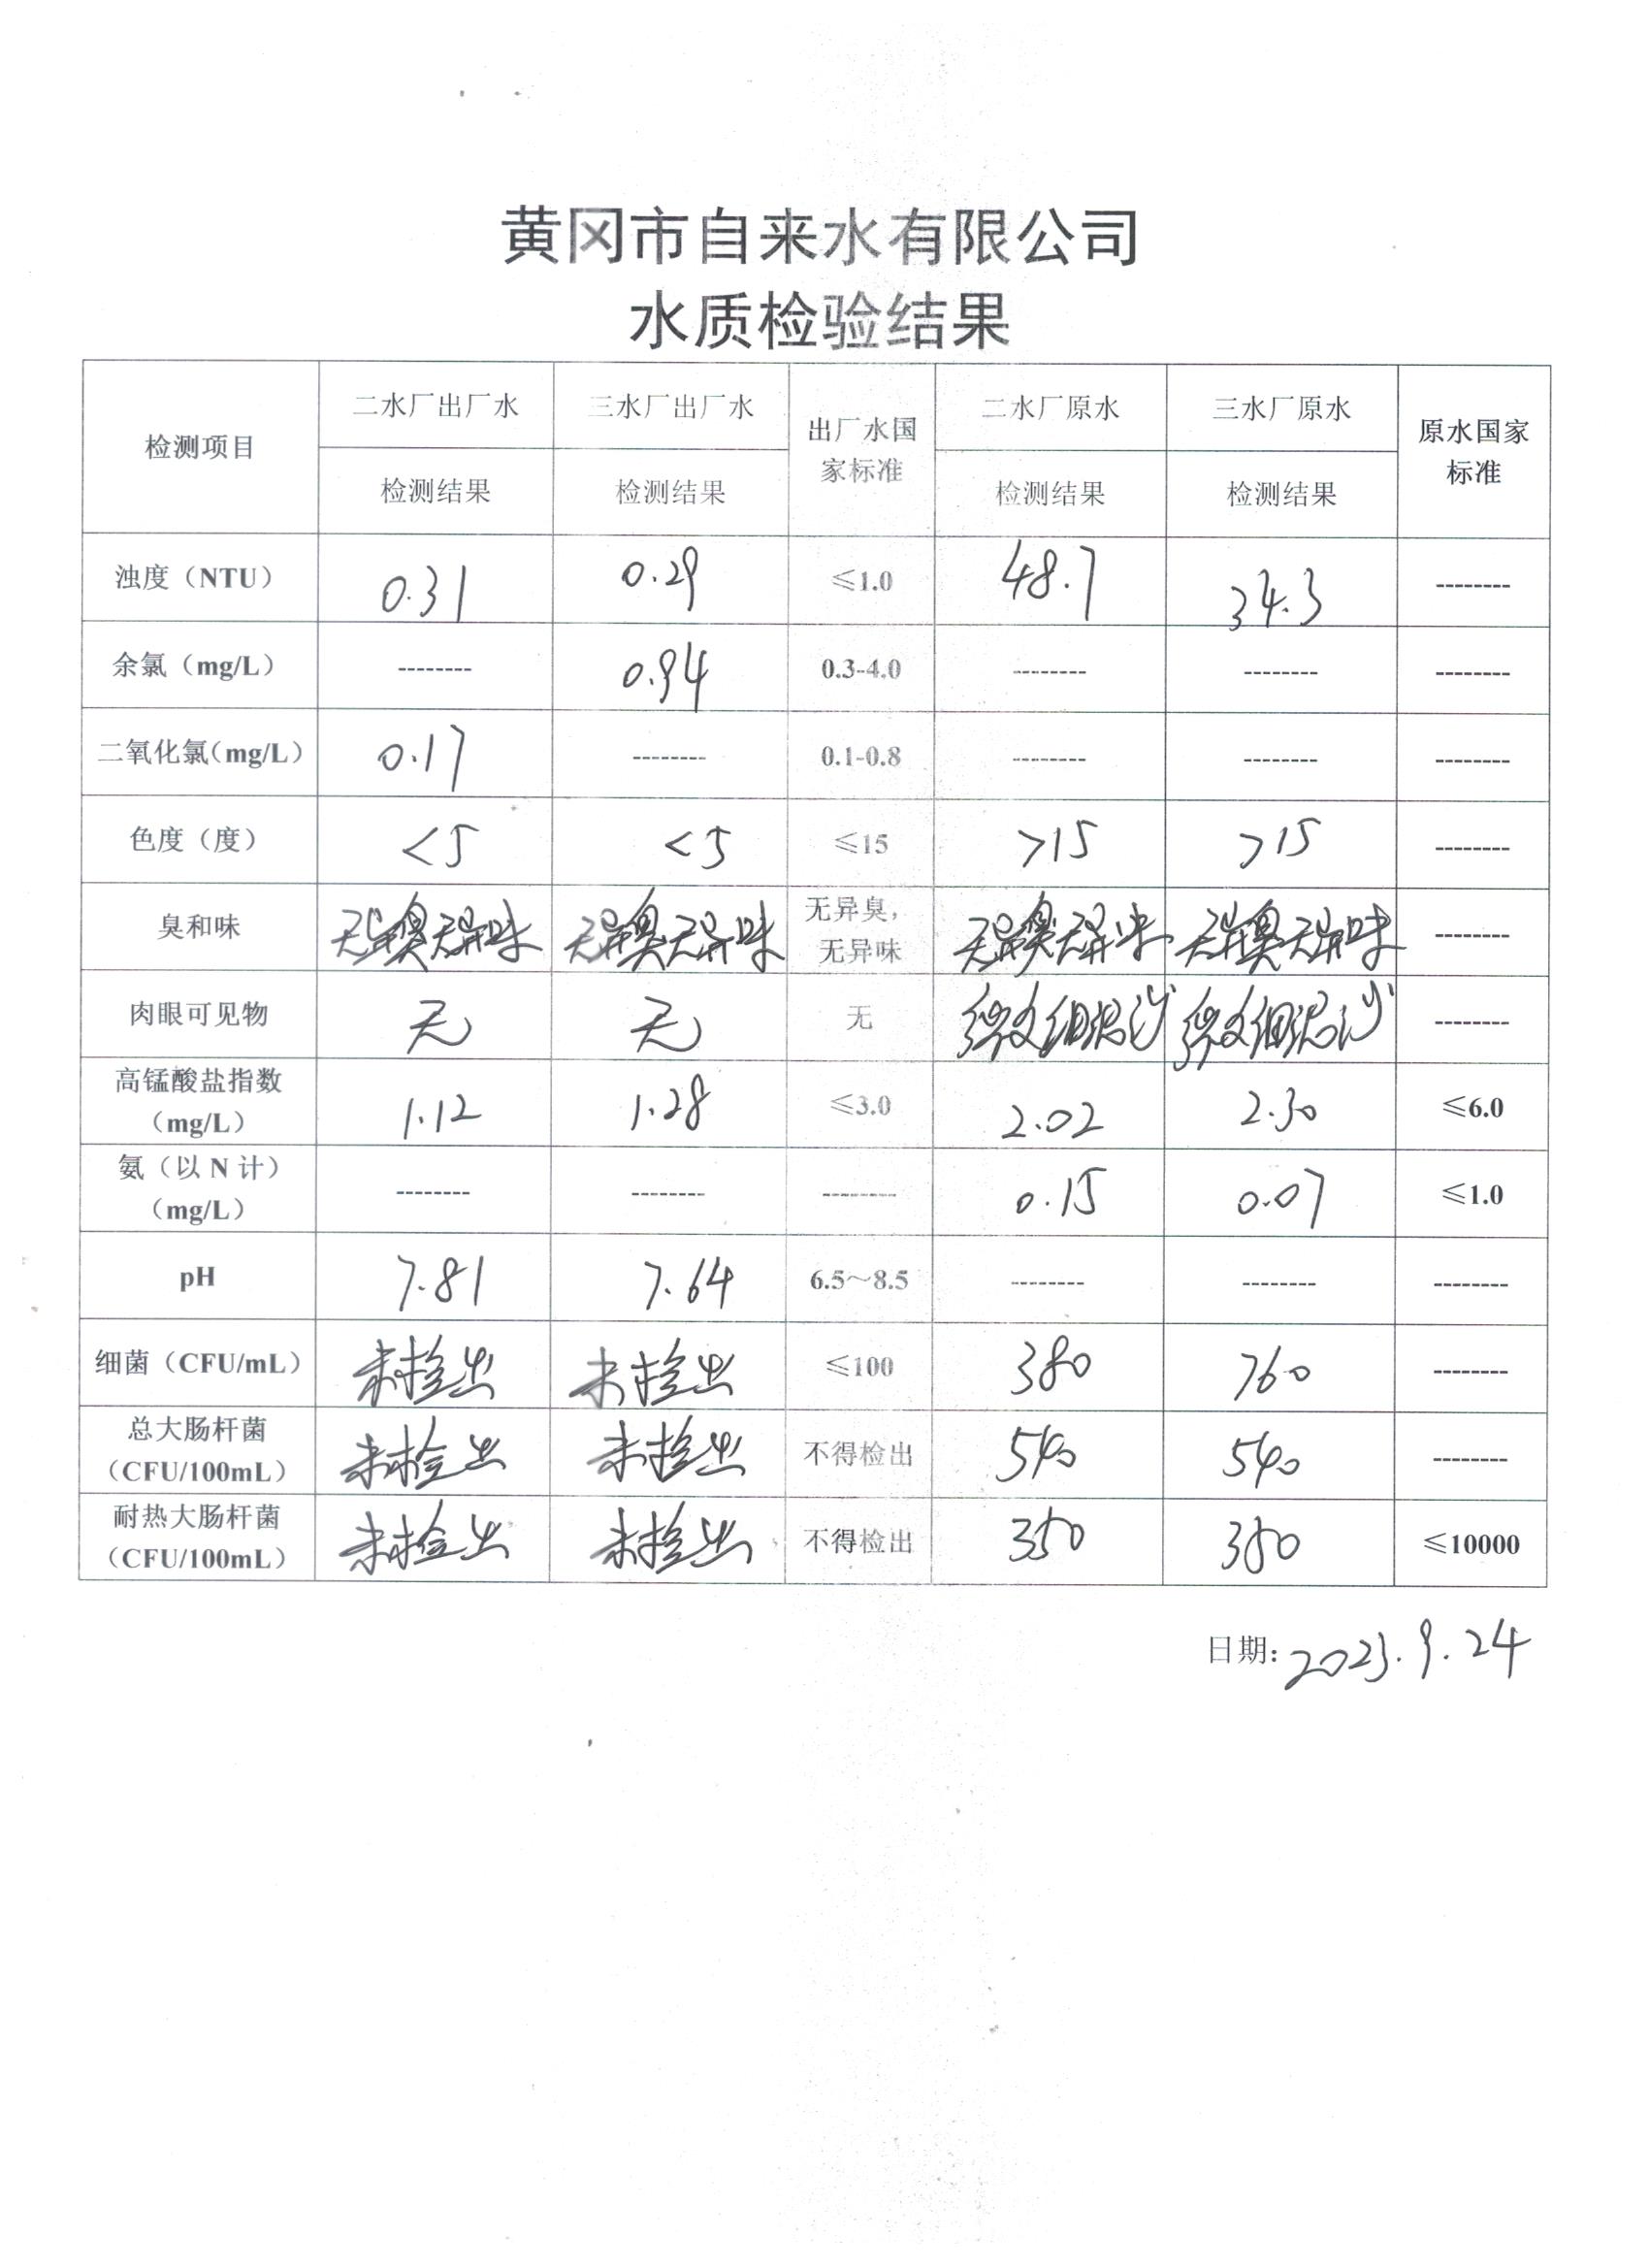 黄冈市自来水有限公司
水质检验结果
检测项目 二水厂出厂水 三水厂出厂水 出厂水国家标准 二水厂原水 三水厂原水 原水国家标准
检测结果 检测结果 检测结果 检测结果
浊度（NTU） 0.31 0.29 ≤1.0 48.7 34.3 --------
余氯（mg/L） -------- 0.94 0.3-4.0 -------- -------- --------
二氧化氯（mg/L） 0.17 -------- 0.1-0.8 -------- -------- --------
色度（度） <5 <5 ≤15 >15 >15 --------
臭和味 无异臭无异味 无异臭无异味 无异臭，无异味 无异臭无异味 无异臭无异味 --------
肉眼可见物 无 无 无 微文细泥沙 微文细泥沙 --------
高锰酸盐指数（mg/L） 1.12 1.28 ≤3.0 2.02 2.30 ≤6.0
氨（以 N 计）（mg/L） -------- -------- -------- 0.15 0.07 ≤1.0
pH 7.81 7.64 6.5～8.5 -------- -------- --------
细菌（CFU/mL） 未检出 未检出 ≤100 380 760 --------
总大肠杆菌（CFU/100mL） 未检出 未检出 不得检出 540 540 --------
耐热大肠杆菌（CFU/100mL） 未检出 未检出 不得检出 350 350 ≤10000
日期: 2023.9.24